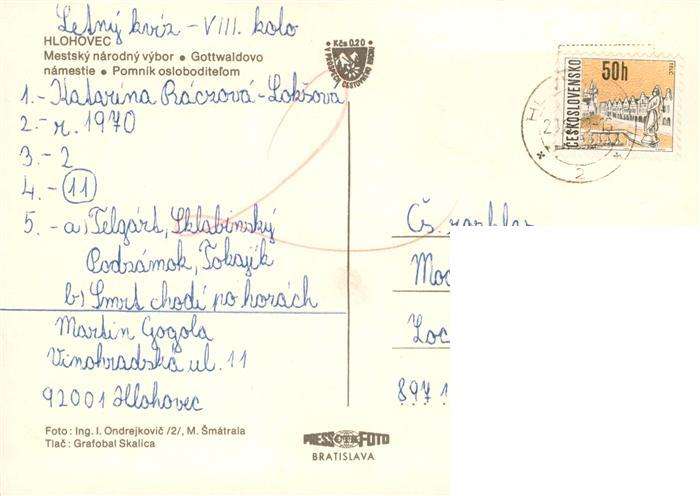 Letný kvíz - VIII. kolo
HLOHOVEC
Mestský národný výbor • Gottwaldovo
námestie • Pomník osloboditeľom
1.- Katarína Ráczová-Lokšová
2.- r. 1970
3.- 2
4.- 11
5.- a) Telgárt, Sklabinský
Podzámok, Tokajík
b) Smrť chodí po horách
Martin Gogola
Vinohradská ul. 11
92001 Hlohovec
Foto : Ing. I. Ondrejkovič /2/, M. Šmátrala
Tlač : Grafobal Skalica
Kčs 0.20
PRESS ČTK FOTO
BRATISLAVA
50h
ČESKOSLOVENSKO
2
Čs.
897 1